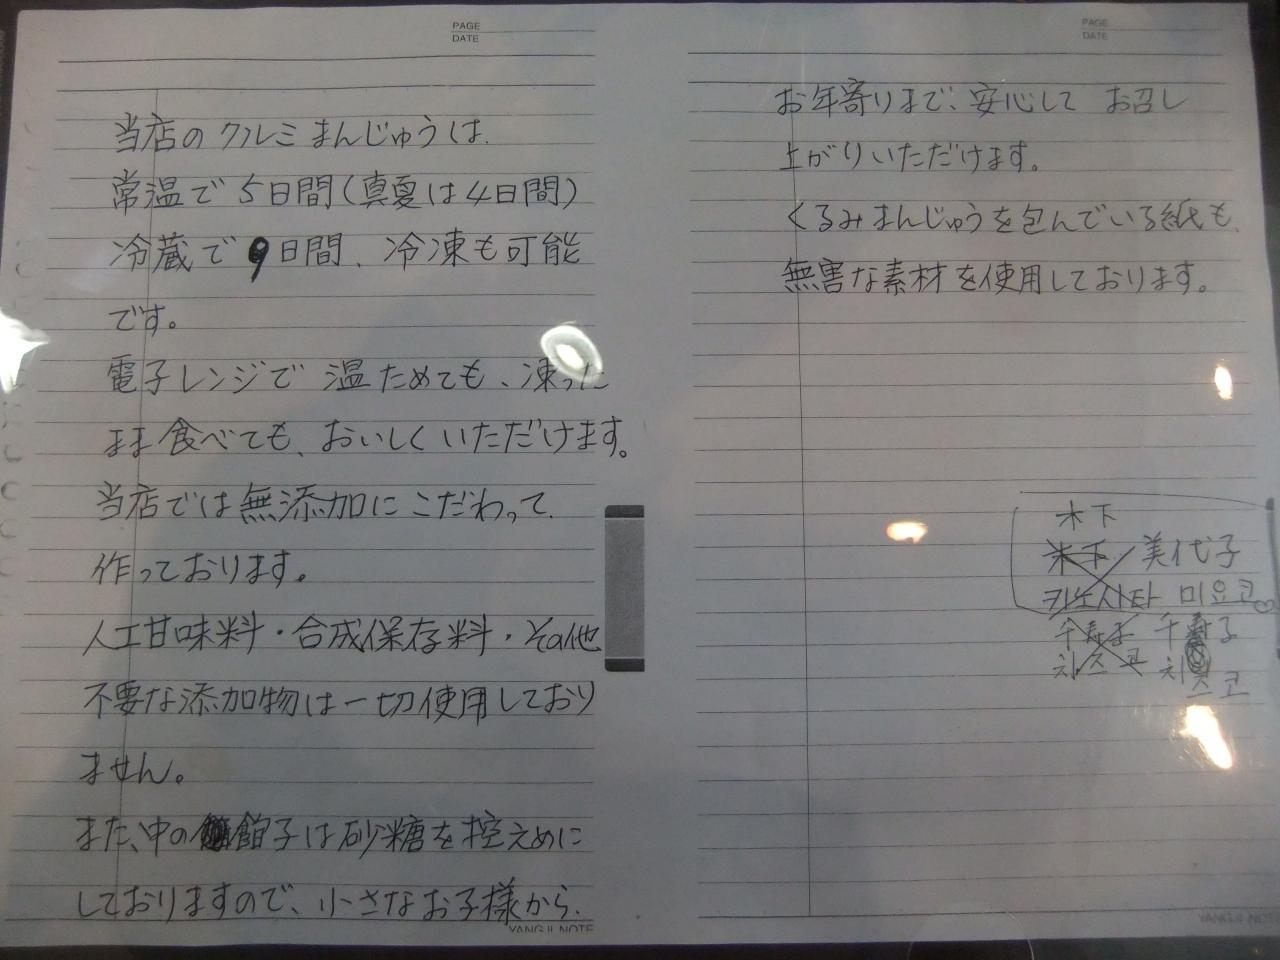 PAGE
DATE
当店のクルミまんじゅうは、
常温で5日間(真夏は4日間)
冷蔵で9日間、冷凍も可能
です。
電子レンジで温ためても、凍った
まま食べても、おいしくいただけます。
当店では無添加にこだわって、
作っております。
人工甘味料・合成保存料・その他
不要な添加物は一切使用しており
ません。
また、中の餡子は砂糖を控えめに
しておりますので、小さなお子様から、
YANGJI NOTE
PAGE
DATE
お年寄りまで、安心して お召し
上がりいただけます。
くるみまんじゅうを包んでいる紙も、
無害な素材を使用しております。
木下
木下 美代子
키노시타 미요코
千寿子
YANGJI NOTE